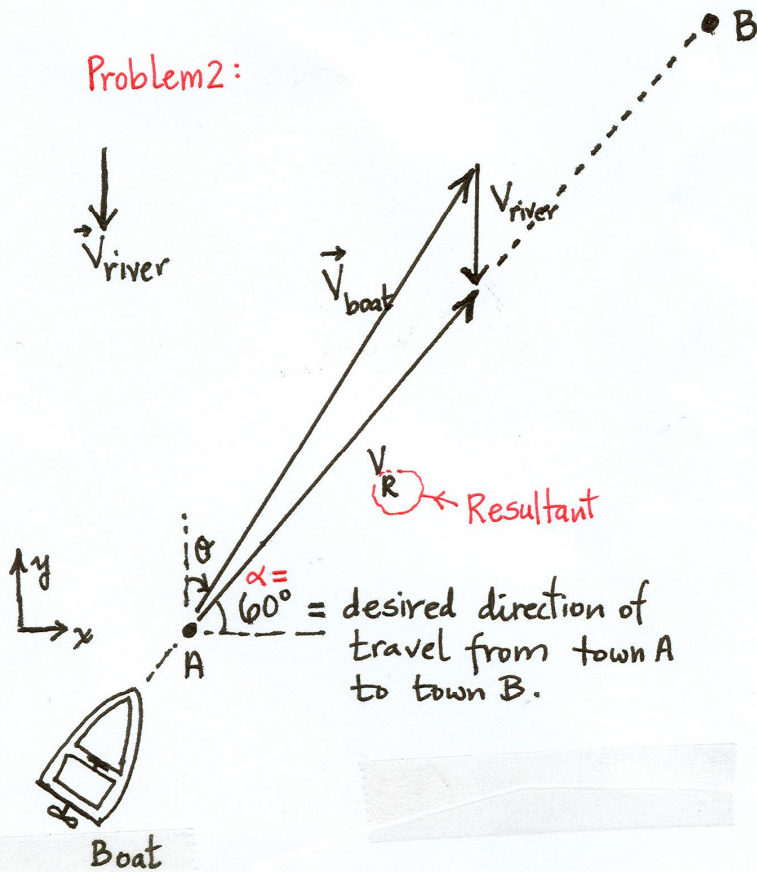 B
Problem2:
V river
V boat
V river
V R
Resultant
y
x
θ
α =
60° = desired direction of
travel from town A
to town B.
A
Boat